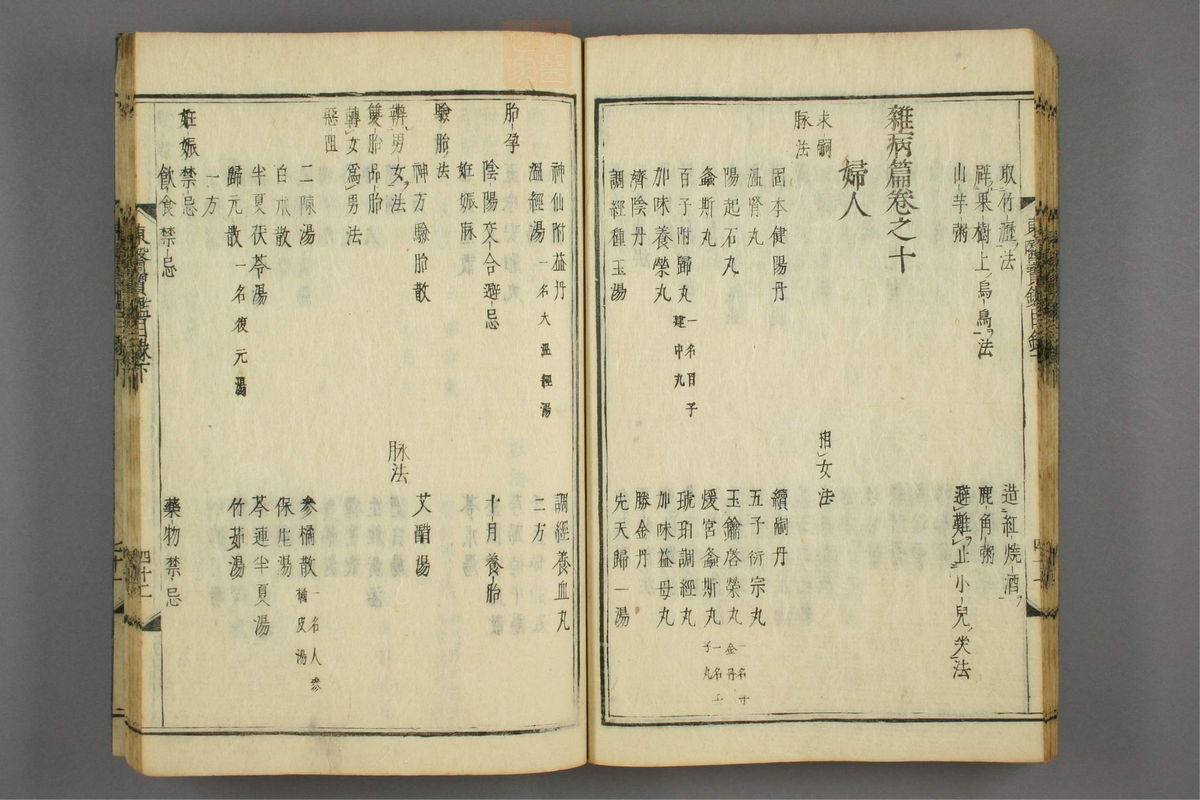 取竹瀝法 造紅燒酒
辟果樹上烏鳥法 鹿角粥
山芋粥 避難止小兒哭法
雜病篇卷之十
婦人
求嗣 相女法
脉法
固本健陽丹 續嗣丹
溫腎丸 五子衍宗丸
陽起石丸 玉鑰啓榮丸
螽斯丸 煖宮螽斯丸
百子附歸丸 一名百子建中丸 琥珀調經丸
加味養榮丸 加味益母丸
濟陰丹 勝金丹
調經種玉湯 先天歸一湯
神仙附益丹 調經養血丸
溫經湯 一名大溫經湯 二方
胎孕
陰陽交合避忌 十月養胎
妊娠脉
驗胎法
神方驗胎散 艾醋湯
辨男女法 脉法
雙胎品胎
轉女爲男法
惡阻
二陳湯 參橘散 一名人參橘皮湯
白朮散 保生湯
半夏茯苓湯 芩連半夏湯
歸元散 一名復元湯 竹茹湯
一方
妊娠禁忌
飮食禁忌 藥物禁忌
東醫寶鑑目錄下
四十二